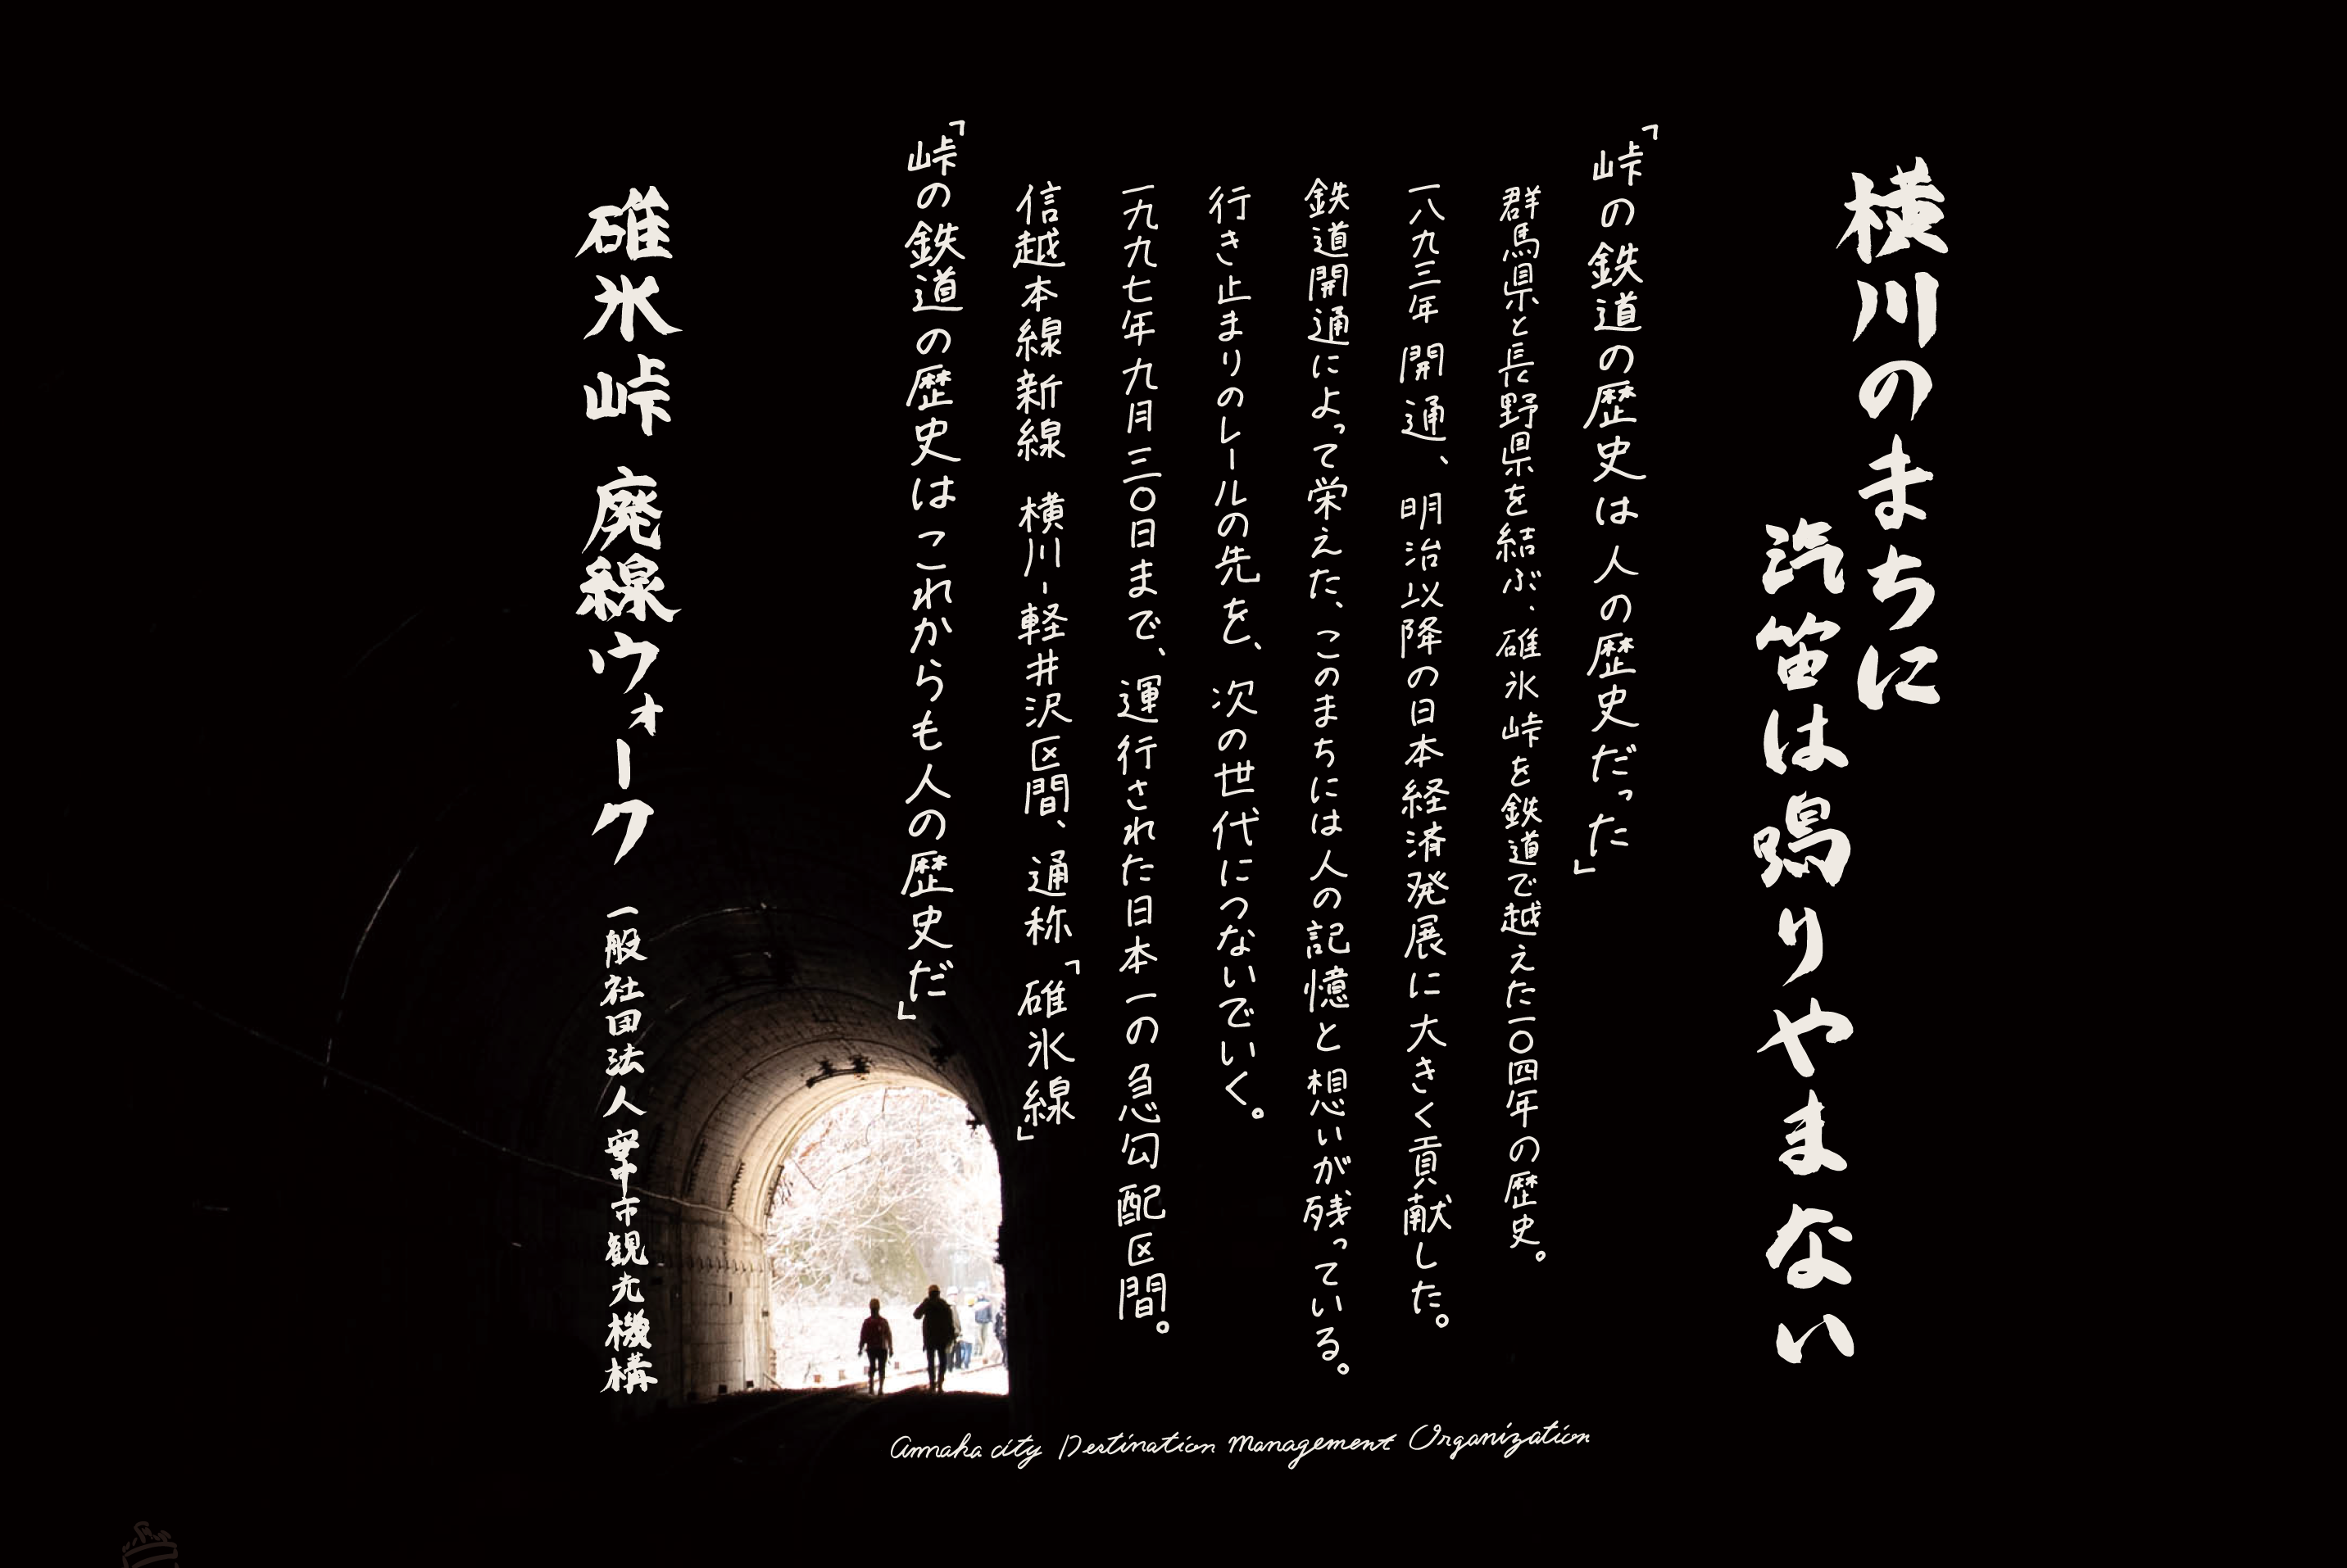 横川のまちに
汽笛は鳴りやまない
「峠の鉄道の歴史は人の歴史だった」
群馬県と長野県を結ぶ、碓氷峠を鉄道で越えた一〇四年の歴史。
一八九三年開通、明治以降の日本経済発展に大きく貢献した。
鉄道開通によって栄えた、このまちには人の記憶と想いが残っている。
行き止まりのレールの先を、次の世代につないでいく。
一九九七年九月三〇日まで、運行された日本一の急勾配区間。
信越本線新線 横川-軽井沢区間、通称「碓氷線」
「峠の鉄道の歴史はこれからも人の歴史だ」
碓氷峠 廃線ウォーク 一般社団法人安中市観光機構
Annaka city Destination Management Organization